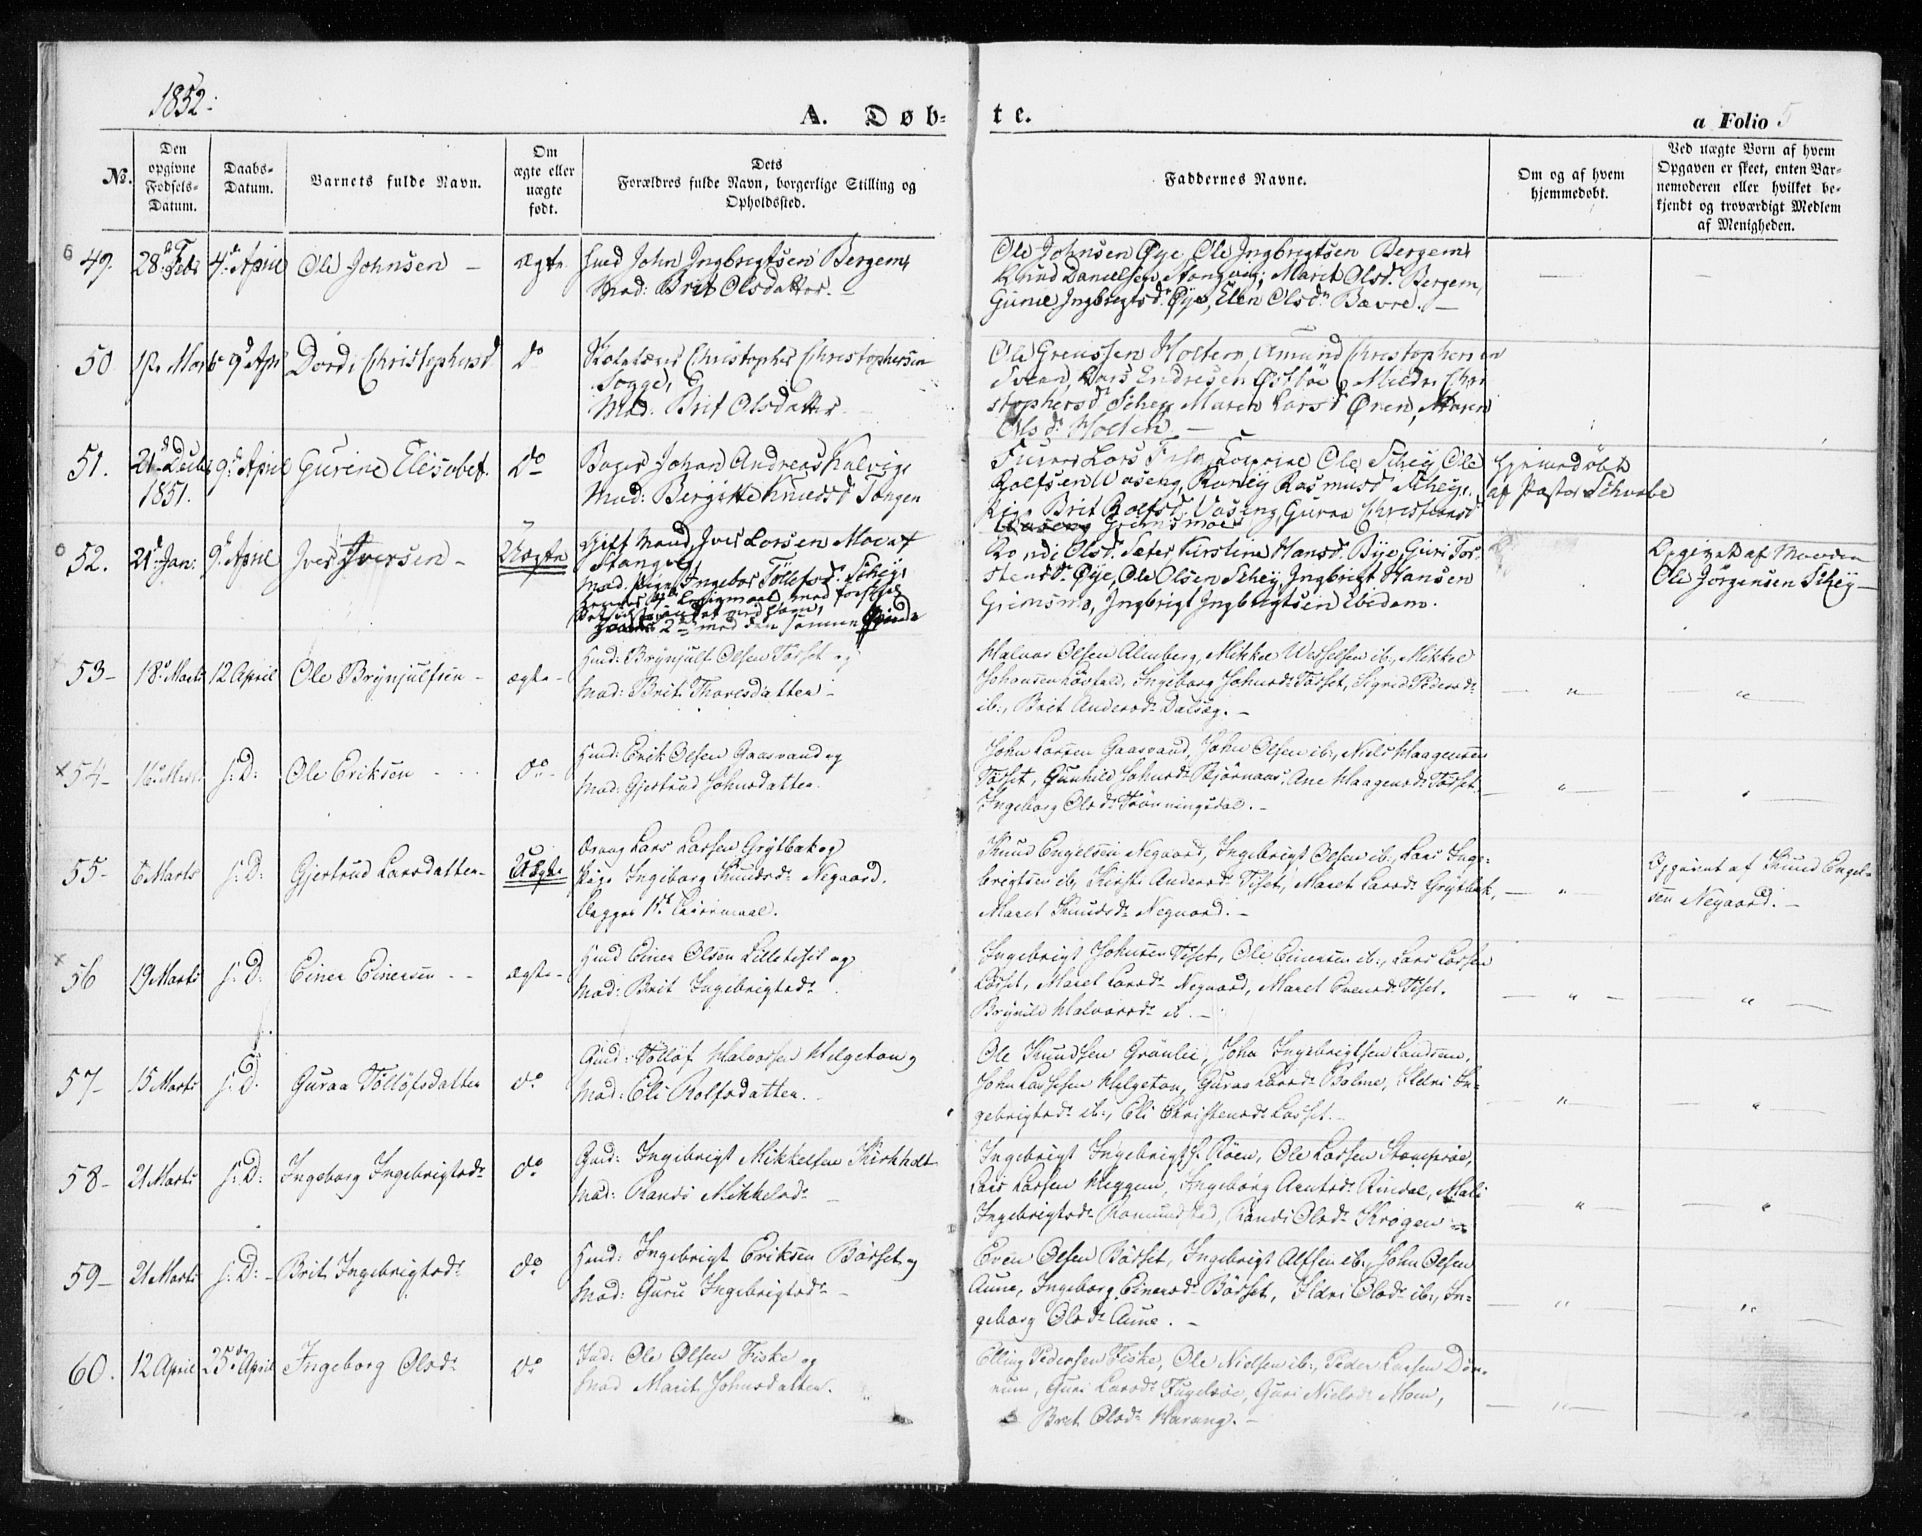 1852.
A. Døb-
te.
a Folio 5
No.
Den
opgivne
Fødsels-
Datum.
Daabs-
Datum.
Barnets fulde Navn.
Om
ægte eller
uægte
født.
Dets
Forældres fulde Navn, borgerlige Stilling og
Opholdssted.
Faddernes Navne.
Om og af hvem
hjemmedøbt.
Ved uægte Born af hvem
Opgaven er skeet, enten Bar-
nemoderen eller hvilket be-
kjendt og troværdigt Medlem
af Menigheden.
49. 28d Feb 4d April Ole Johnsen - ægte
Huusd John Ingbrigtsen Bergem,
Mad: Brit Olsdatter. -
Ole Johnsen Øye, Ole Ingbrigtsen Bergem,
Knud Danielsen Stangvig, Maret Olsd. Bergem,
Gunil Ingbrigtsd. Øye, Elen Olsdr Bævre. -
50. 9d Apr Dordi Christophersd. Do
Christopher Christophersen
Sogge,
Mad: Brit Olsdatter.
Ole Holten, Amund Christophersen
Svean, Lars Endresen Østbøe, Mildri Chri
stophersd. Schey, Maren Larsd. Øren, Maren
Olsd. Holten. -
51. 21d Decbr 9d April Gurine Elisabet. Do
1851.
Johan Andreas Kalvig,
Mad: Bergitte Knudsd Tangen
Lars Ole Schey, Ole
Rolfsen Waseng, Ranley Rasmusd. Schey,
Pige Brit Rolfsd. Vaseng, Guraa Christiansd
Grimsmoe
Hjemmedøbt
af Pastor Schwabe
52. 21d Jan: 9d April Iver Iversen - Uægte
Gift Mand Iver Larsen Moe af
Stangvig,
Mad. Pige Ingebor Tollefsd. Schey,
2den med den samme Qvinde
Randi Olsd. Sæter, Kirstine Hansd. Bye, Guri Tor
stensd. Øye, Ole Olsen Schey, Ingbrigt Hansen
Grimsmo, Ingbrigt Ingbrigtsen ibidem.
Opgivet af Manden
Ole Jörgensen Schey -
53- 18d Marts 12 April Ole Brynjulfsen - ægte -
Huusd: Brynjulf Olsen Tørset og
Mad: Brit Thoresdatter -
Halvor Olsen Almberg, Mikkel Wesselsen ib:, Mikkel
Johansen Løvfald, Ingeborg Johnsdr Tørset, Sigrid Pedersdr
ib:, Brit Andersdr Dalsæg. -
- " -
- " -
x 54- 16d Marts s: D: Ole Eriksen - do -
Huusd: Erik Olsen Gaasvand og
Mad: Gjertrud Johnsdatter.
John Larsen Gaasvand, John Olsen ib:, Niels Haagensen
Tørset, Gunhild Johnsdr Bjørnaas, Ane Haagensdr Tørset,
Ingeborg Olsdr Trønningsdal. -
- " -
55- 6 Marts s: D: Gjertrud Larsdatter - Uægte
Dreng Lars Larsen Grytbak og
Pige Ingeborg Knudsdr Negaard.
Begges 1ste Leiermaal.
Knud Engelsen Negaard, Ingebrigt Olsen ib:, Lars Inge-
brigtsen ib:, Kirsti Andersdr Tiset, Maret Larsdr Grytbak,
Maret Knudsdr Negaard. -
- " -
Opgivent af Knud Engel-
sen Negaard. -
x 56 19 Marts s: D: Einer Einersen - - ægte -
Huusd Einer Olsen Lilletiset og
Mad: Brit Ingebrigtsdr
Ingebrigt Johnsen Tiset, Ole Einersen ib:, Lars Larsen
Løset, Maret Larsdr Negaard, Maret Evensdr Tiset,
Brynild Halvorsdr ib. -
- " -
- " -
57- 15 Marts s: D: Guraa Tølløfsdatter do
Gmd: Tølløf Halvorsen Helgeton og
Mad: Eli Rolfsdatter.
Ole Knudsen Grönlie, John Ingebrigtsen Landsem,
John Larsen Helgeton, Guraa Larsdr Bolme, Ildri In-
gebrigtsdr ib:, Eli Christensdr Løsset -
- " -
- " -
58- 21 Marts s: D: Ingeborg Ingebrigtsdr do
Gmd: Ingebrigt Mikkelsen Kirkholt
Mad: Randi Mikkelsdr -
Ingebrigt Ingebrigts. Röen, Ole Larsen Stomprøe,
Lars Larsen Heggem, Ingeborg Arntsdr Rindal, Mali
Ingebrigtsdr Romundstad, Randi Olsdr Krogen -
- " -
- " -
59- 21 Marts s: D: Brit Ingebrigtsdr do
Huusd: Ingebrigt Eriksen Börset og
Mad: Guru Ingebrigtsdr -
Even Olsen Börset, Ingebrigt Alfsen ib:, John Olsen
Aune, Ingeborg Einersdr Börset, Ildri Olsdr ib:, In-
geborg Olsdr Aune. -
- " -
- " -
60. 12 April 25de April Ingeborg Olsdr do
Ind: Ole Olsen Fiske og
Mad Marit Johnsdatter.
Elling Pedersen Fiske, Ole Nielsen ib:, Peder Larsen Dør-
num, Guri Larsdr Fugelsøe, Guri Nielsdr Moen,
Brit Olsdr Harang. -
- " -
- " -